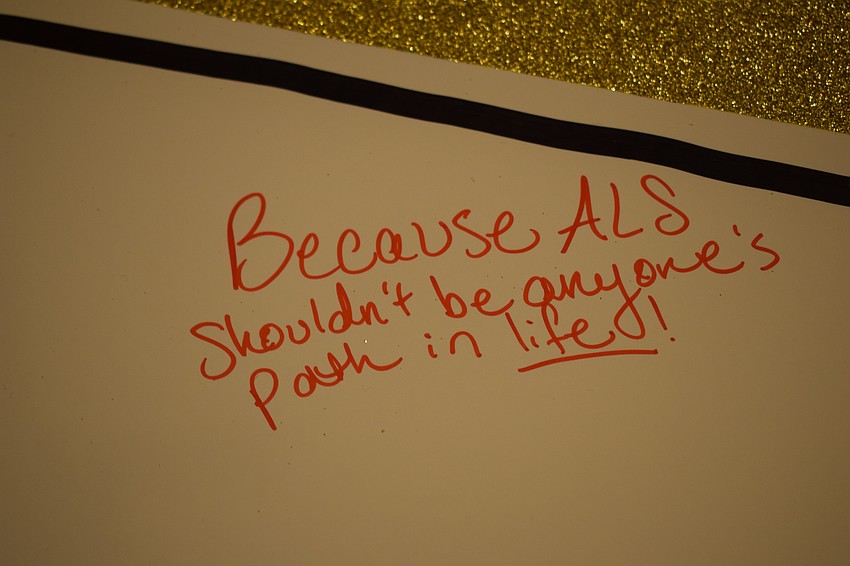 Because ALS
shouldn't be anyone's
path in life!